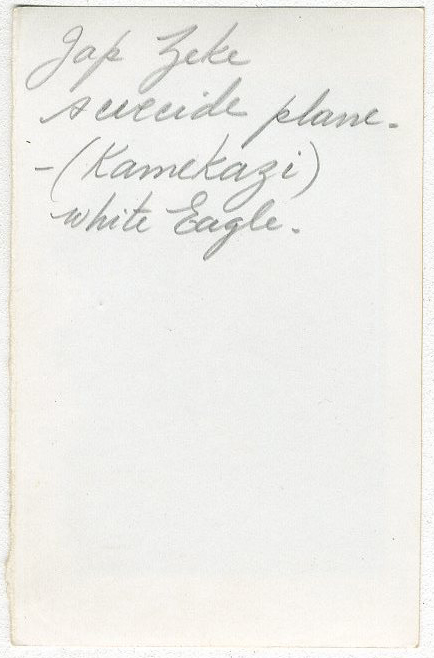 Jap Zeke
suicide plane.
-(Kamekazi)
white Eagle.